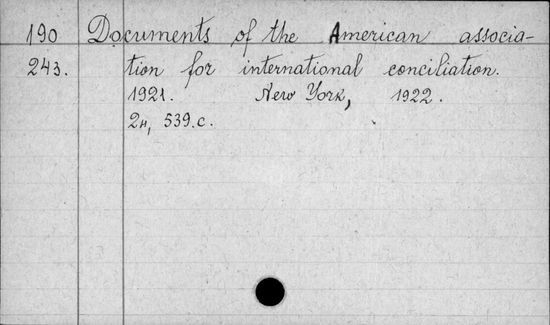 190 Documents of the American associa-
243. tion for international conciliation.
1921. New York, 1922.
2н, 539.с.